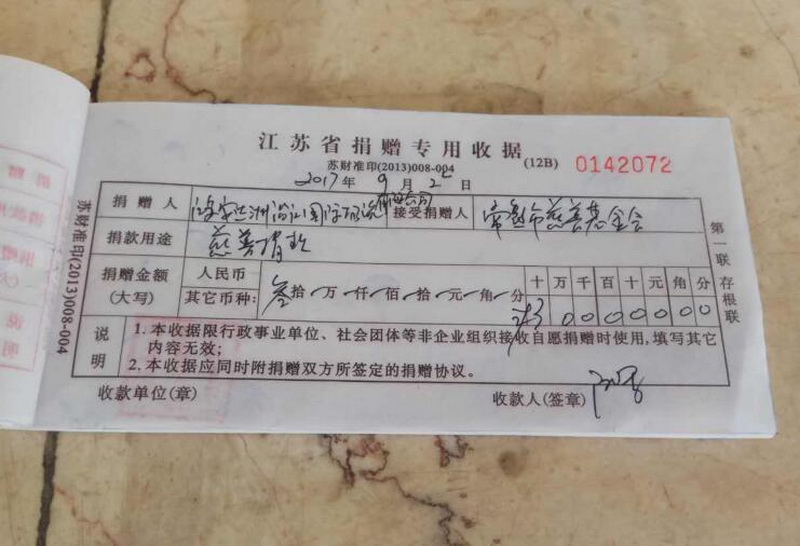 江苏省捐赠专用收据(12B)
0142072
苏财准印(2013)008-004
2017年9月2 日
捐赠人
接受捐赠人
慈善基金会
捐款用途
慈善捐款
捐赠金额
(大写)
人民币
其它币种:
叁拾 万 仟 佰 拾 元 角 分
十万千百十元角分
¥30000000
说明
1.本收据限行政事业单位、社会团体等非企业组织接收自愿捐赠时使用,填写其它
内容无效;
2.本收据应同时附捐赠双方所签定的捐赠协议。
收款单位(章)
收款人(签章)
第一联 存根联
苏财准印(2013)008-004